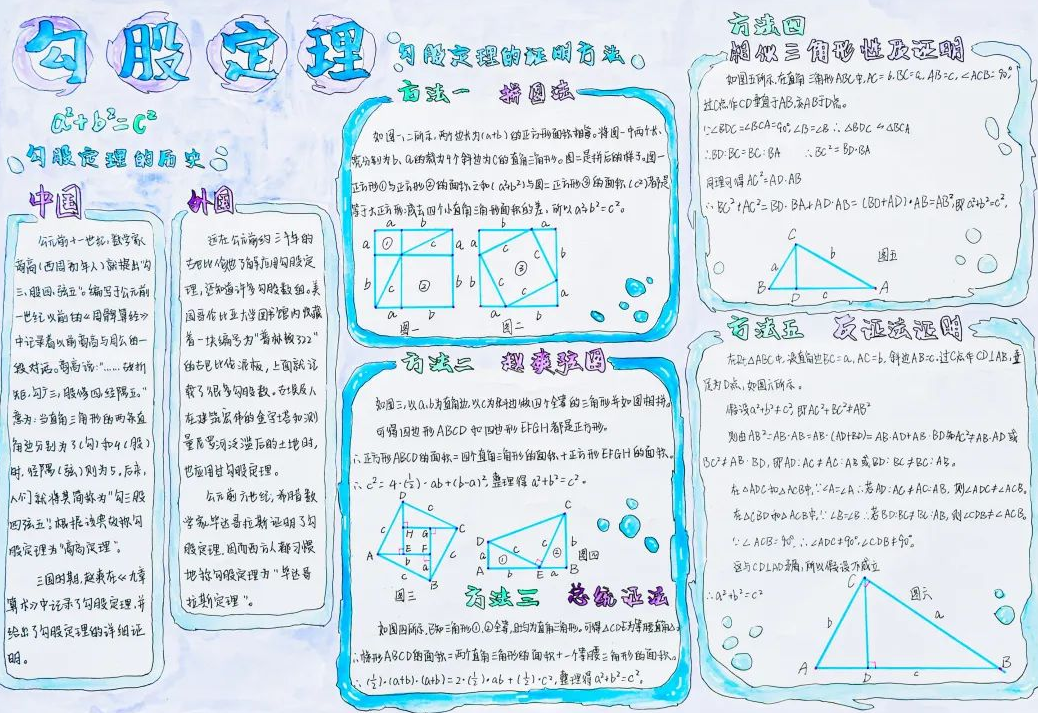 勾股定理
a²+b²=c²
勾股定理的历史
中国
公元前十一世纪,数学家
商高(西周初年人)就提出"勾
三、股四、弦五"。编写于公元前
一世纪以前的《周髀算经》
中记录着商高与周公的一
段对话。商高说:"……故折
矩,勾广三,股修四,经隅五。"
意为:当直角三角形的两条直
角边分别为3(勾)和4(股)
时,径隅(弦)则为5。后来,
人们就将其简称为"勾三股
四弦五"。根据该典故称勾
股定理为"商高定理"。
三国时期,赵爽在《九章
算术》中记录了勾股定理,并
给出了勾股定理的详细证
明。
外国
远在公元前约三千年的
古巴比伦就了解和应用勾股定
理,还知道许多勾股数组。美
国哥伦比亚大学图书馆内收藏
着一块编号为"普林顿322"
的古巴比伦泥板,上面就记
载了很多勾股数。古埃及人
在建筑宏伟的金字塔和测
量尼罗河泛滥后的土地时,
也应用过勾股定理。
公元前六世纪,希腊数
学家毕达哥拉斯证明了勾
股定理,因而西方人都习惯
地称勾股定理为"毕达哥
拉斯定理"。
勾股定理的证明方法
方法一 拼图法
如图一、二所示,两边长为(a+b)的正方形面积相等。将图一中两个长、
宽分别为b、a的裁为4个斜边为c的直角三角形。图二是拼后的样子。图一
正方形①与正方形②的面积之和(a²+b²)与图二正方形③的面积(c²)都是
等于大正方形减去四个小直角三角形面积的差,所以a²+b²=c²。
a b b a
a ① c a a c ③ c b
b c ② b b c c a
a b a b
图一 图二
方法二 赵爽弦图
如图三,以a、b为直角边,以c为斜边做四个全等的三角形并如图相拼。
可得四边形ABCD和四边形EFGH都是正方形。
∴正方形ABCD的面积=四个直角三角形的面积+正方形EFGH的面积。
∴c²=4·(½)·ab+(b-a)²,整理得a²+b²=c²。
D
c c
H G C
A E F
c b a c
B
图三
C
D c b
a ① c ②
A b E a B
图四
方法三 总统证法
如图四所示,已知三角形①、②全等,且均为直角三角形。可得△CDE为等腰直角△
∴梯形ABCD的面积=两个直角三角形的面积+一个等腰三角形的面积。
∴(½)·(a+b)·(a+b)=2·(½)·ab+(½)·c²,整理得a²+b²=c²。
方法四
相似三角形性及证明
如图五所示,在直角三角形ABC中,AC=b,BC=a,AB=c,∠ACB=90°
过C点作CD垂直于AB,交AB于D点。
∵∠BDC=∠BCA=90°,∠B=∠B ∴△BDC∽△BCA
∴BD:BC=BC:BA ∴BC²=BD·BA
同理可得AC²=AD·AB
∴BC²+AC²=BD·BA+AD·AB=(BD+AD)·AB=AB²,即a²+b²=c²。
C
a b 图五
B D c A
方法五 反证法证明
在Rt△ABC中,设直角边BC=a,AC=b,斜边AB=c,过C点作CD⊥AB,垂
足为D点,如图六所示。
假设a²+b²≠c²,即AC²+BC²≠AB²
则由AB²=AB·AB=AB·(AD+BD)=AB·AD+AB·BD知AC²≠AB·AD或
BC²≠AB·BD,即AD:AC≠AC:AB或BD:BC≠BC:AB。
在△ADC和△ACB中,∵∠A=∠A∴若AD:AC≠AC:AB,则∠ADC≠∠ACB。
在△CBD和△ACB中,∵∠B=∠B∴若BD:BC≠BC:AB,则∠CDB≠∠ACB。
∵∠ACB=90°,∴∠ADC≠90°,∠CDB≠90°。
这与CD⊥AD矛盾,所以假设不成立
∴a²+b²=c²
C 图六
b a
A D c B